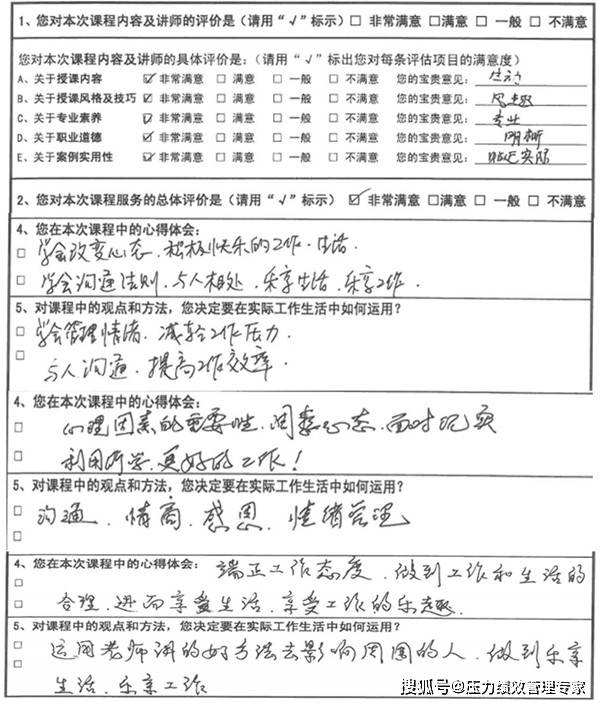 1、您对本次课程内容及讲师的评价是（请用“√”标示）□ 非常满意 □满意 □ 一般 □ 不满意
您对本次课程内容及讲师的具体评价是：（请用“√”标出您对每条评估项目的满意度）
A、关于授课内容 ☑ 非常满意 □ 满意 □ 一般 □ 不满意 您的宝贵意见： 生动
B、关于授课风格及技巧 ☑ 非常满意 □ 满意 □ 一般 □ 不满意 您的宝贵意见： 风趣
C、关于专业素养 ☑ 非常满意 □ 满意 □ 一般 □ 不满意 您的宝贵意见： 专业
D、关于职业道德 ☑ 非常满意 □ 满意 □ 一般 □ 不满意 您的宝贵意见： 明晰
E、关于案例实用性 ☑ 非常满意 □ 满意 □ 一般 □ 不满意 您的宝贵意见： 贴近实际
2、您对本次课程服务的总体评价是（请用“√”标示） ☑ 非常满意 □满意 □ 一般 □ 不满意
4、您在本次课程中的心得体会：
□ 学会改变心态、积极快乐的工作、生活
□ 学会沟通法则、与人相处、乐享生活、乐享工作.
5、对课程中的观点和方法，您决定要在实际工作生活中如何运用？
□ 学会管理情绪、减轻工作压力.
□ 与人沟通、提高工作效率.
4、您在本次课程中的心得体会：
□ 心理因素的重要性,调整心态,面对现实
□ 利用所学,更好的工作！
5、对课程中的观点和方法，您决定要在实际工作生活中如何运用？
□ 沟通、情商、感恩、情绪管理
□
4、您在本次课程中的心得体会： 端正工作态度、做到工作和生活的
□ 合理,进而享受生活、享受工作的乐趣.
5、对课程中的观点和方法，您决定要在实际工作生活中如何运用？
□ 运用老师讲的好方法去影响周围的人、做到乐享
□ 生活、乐享工作
搜狐号@压力绩效管理专家